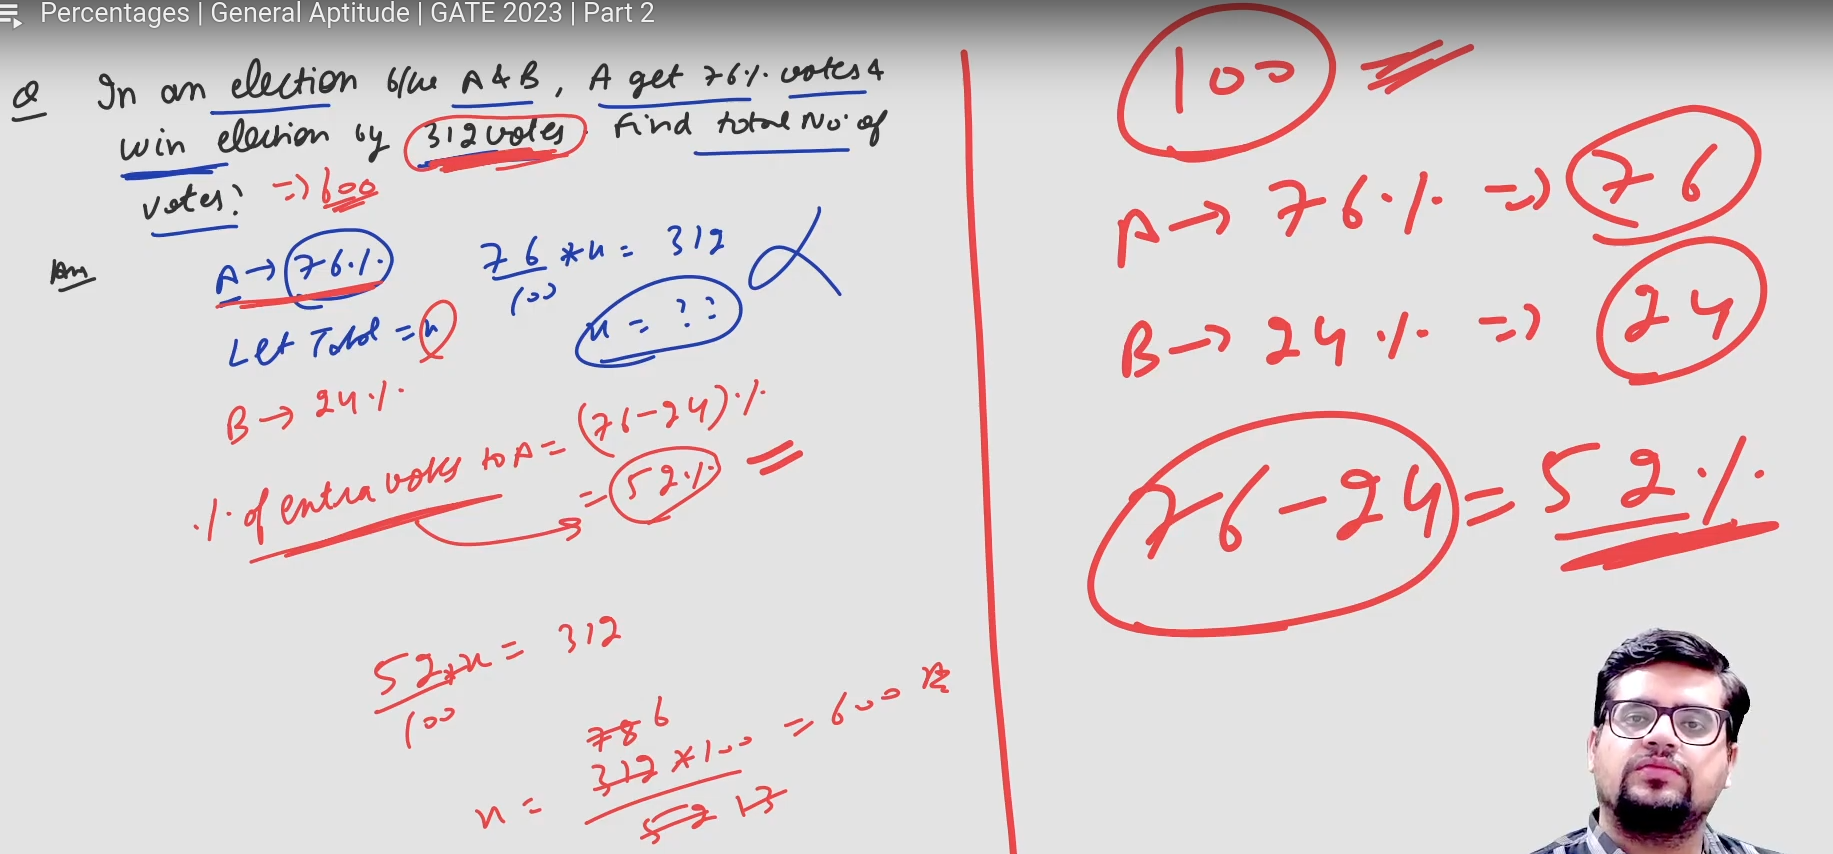 Percentages | General Aptitude | GATE 2023 | Part 2
Q In an election b/w A & B, A get 76% votes &
win election by 312 votes. Find total No. of
votes? => 600
Ans A → 76%
76/100 * n = 312
Let Total = n
n = ??
B → 24%
% of extra votes to A = (76-24)%
= 52%
52/100 * n = 312
78 6
n = 312 * 100 = 600
52 13
100
A → 76% => 76
B → 24% => 24
76-24 = 52%